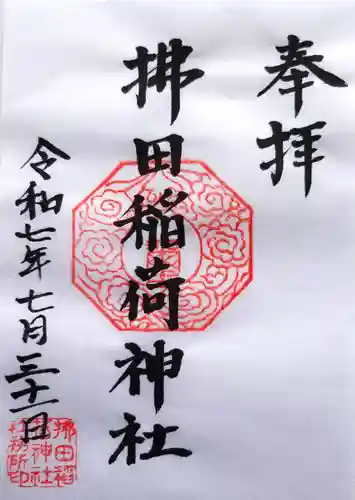 奉拝
拂田稲荷神社
令和七年七月三十一日
拂田稲
荷神社
社務所印